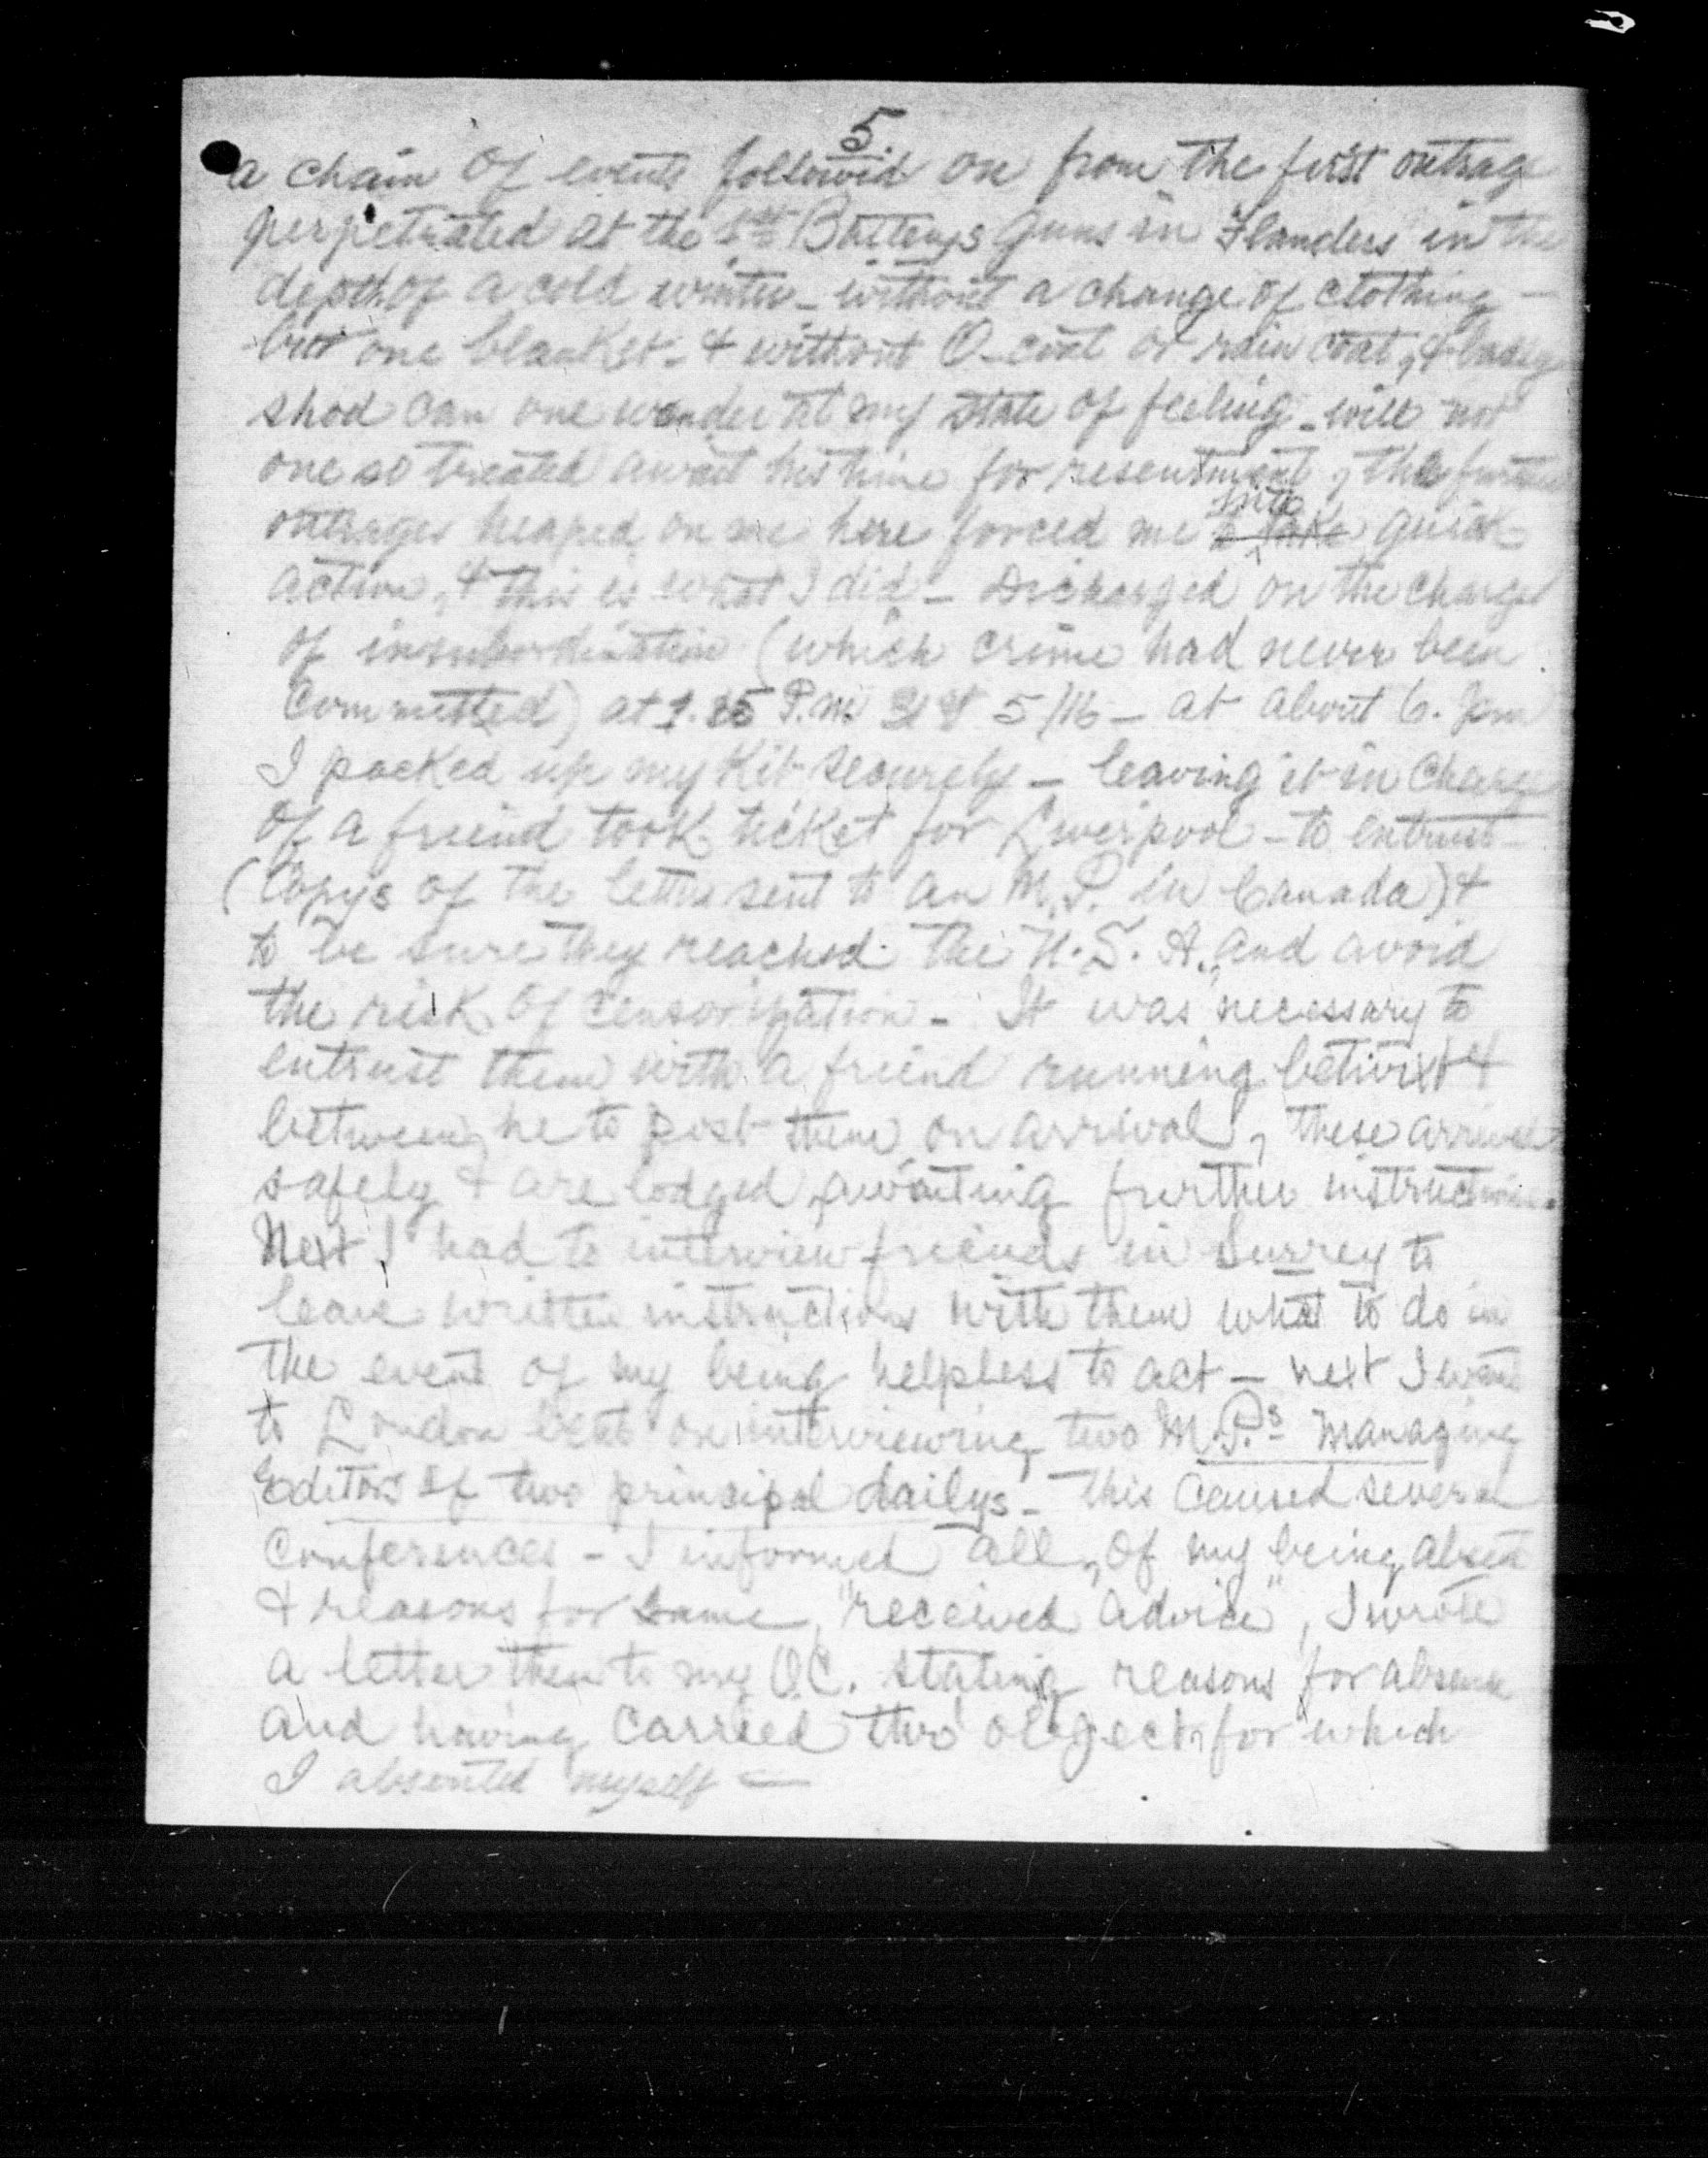 5.
a chain of events followed on from the first outrage
perpetrated at the 1st Batterys guns in Flanders in the
depth of a cold winter - without a change of clothing -
but one blanket - & without O-coat or rain coat, & badly
shod can one wonder at my state of feeling - will not
one so treated await his time for resentment, the further
into
outrages heaped on me here forced me to take quick
action, & this is what I did - Discharged on the charge
of insubordination (which crime had never been
committed) at P.M. 31st 5/16 - at about 6. pm
I packed up my Kit securely - leaving it in charge
of a friend took ticket for Liverpool - to entrust -
(Copys of the letter sent to an M.P. in Canada) &
to be sure they reached the U.S.A., and avoid
the risk of censorization - It was necessary to
entrust them with a friend running betwixt &
between, he to post them on arrival, these arrived
safely & are lodged, awaiting further instructions.
Next I had to interview friends in Surrey to
leave written instructions with them what to do in
the event of my being helpless to act - next I went
to London bent on interviewing two M.P.s Managing
Editors of two principal dailys - this caused several
conferences - I informed all, of my being absent
& reasons for same, "received advice", I wrote
a letter then to my O.C. stating reasons for absence
and having carried two objects for which
I absented myself -